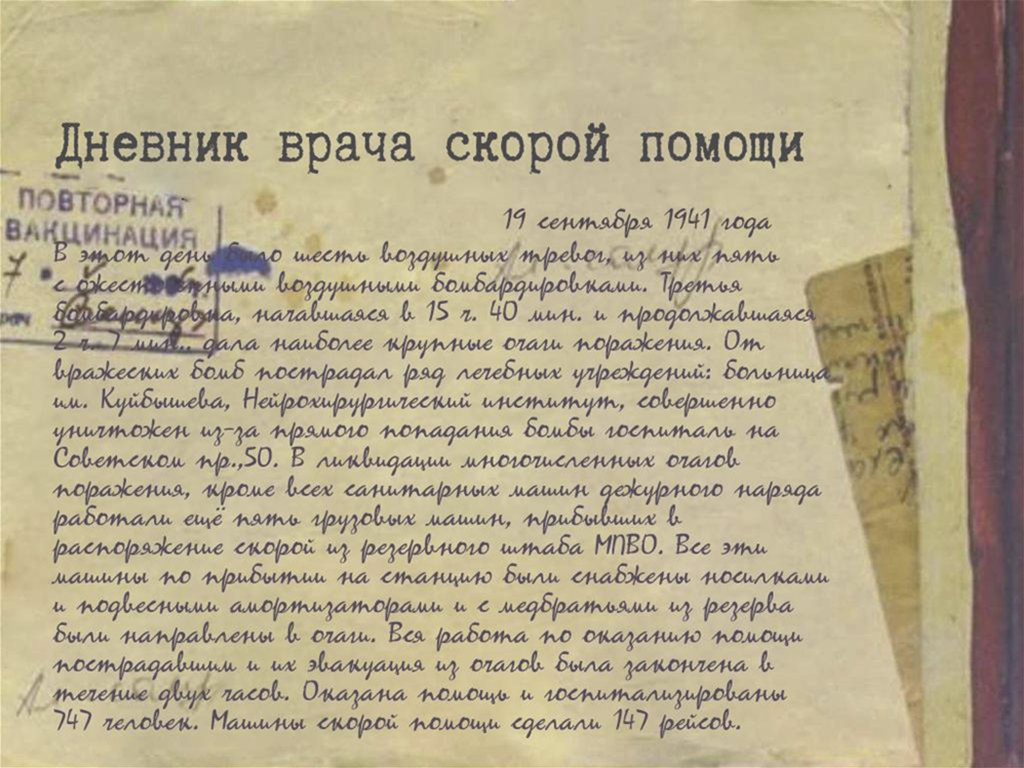 Дневник врача скорой помощи
ПОВТОРНАЯ
ВАКЦИНАЦИЯ
19 сентября 1941 года
В этот день было шесть воздушных тревог, из них пять
с ожесточёнными воздушными бомбардировками. Третья
бомбардировка, начавшаяся в 15 ч. 40 мин. и продолжавшаяся
2 ч. 7 мин., дала наиболее крупные очаги поражения. От
вражеских бомб пострадал ряд лечебных учреждений: больница
им. Куйбышева, Нейрохирургический институт, совершенно
уничтожен из-за прямого попадания бомбы госпиталь на
Советском пр.,50. В ликвидации многочисленных очагов
поражения, кроме всех санитарных машин дежурного наряда
работали ещё пять грузовых машин, прибывших в
распоряжение скорой из резервного штаба МПВО. Все эти
машины по прибытии на станцию были снабжены носилками
и подвесными амортизаторами и с медбратьями из резерва
были направлены в очаги. Вся работа по оказанию помощи
пострадавшим и их эвакуация из очагов была закончена в
течение двух часов. Оказана помощь и госпитализированы
747 человек. Машины скорой помощи сделали 147 рейсов.